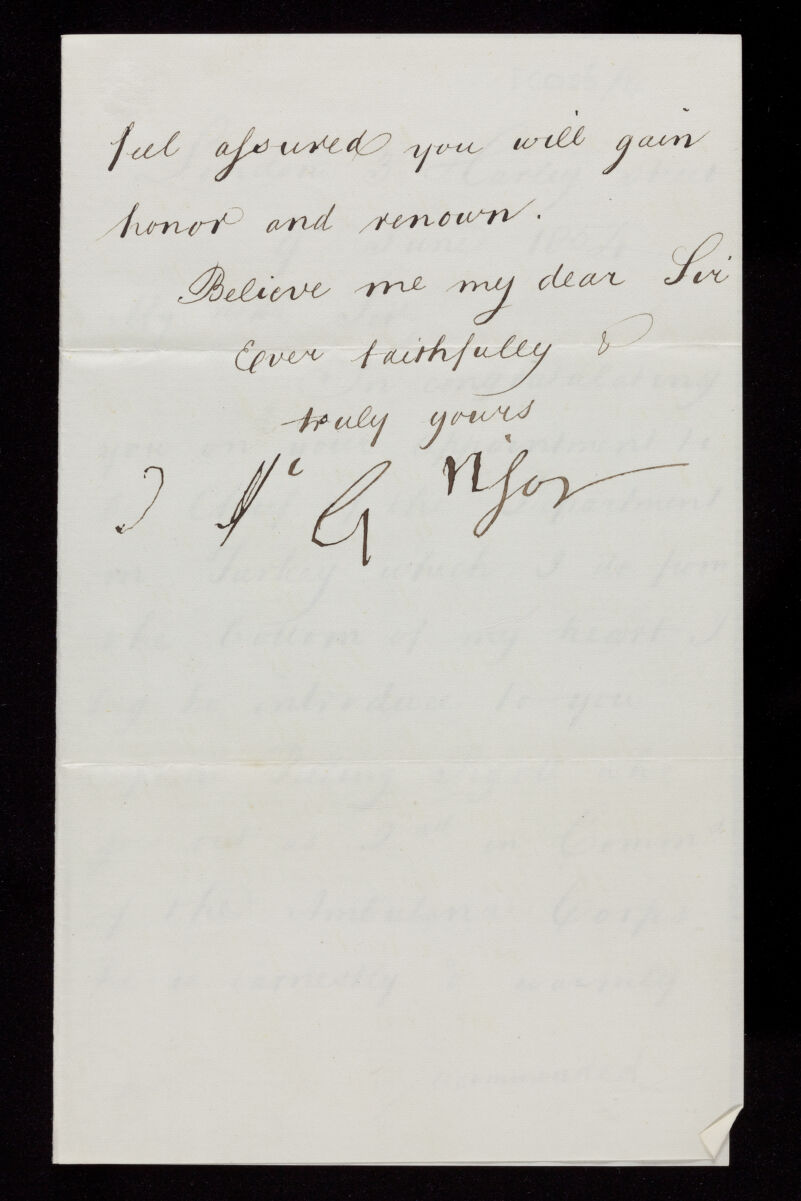 feel assured you will gain
honor and renown.
Believe me my dear Sir
Ever faithfully &
truly yours
J Mc Grigor